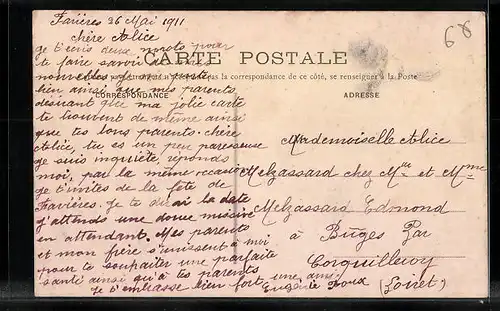 Favières 26 Mai 1911
68
chère Alice
CARTE POSTALE
je t'écris deux mots pour
te faire savoir de mes
nouvelles je me porte
bien ainsi que mes parents,
la correspondance de ce côté, se renseigner à la Poste
CORRESPONDANCE
ADRESSE
désirant que ma jolie carte
te trouvent de même ainsi
que tes bons parents. chère
Alice, tu es un peu paresseuse
je suis inquiète, réponds
moi, par la même occasion
je t'invites de la fête de
Favières. je te dirai la date
j'attends une douce missive
en attendant. Mes parents
et mon frère s'unissent à moi
pour te souhaiter une parfaite
santé ainsi qu'à tes parents
je t'embrasse bien fort une amie
Eugénie Roux
Mademoiselle Alice
Melzassard chez Mr et Mme
Melzassard Edmond
à Buges Par
Corquilleroy
(Loiret)